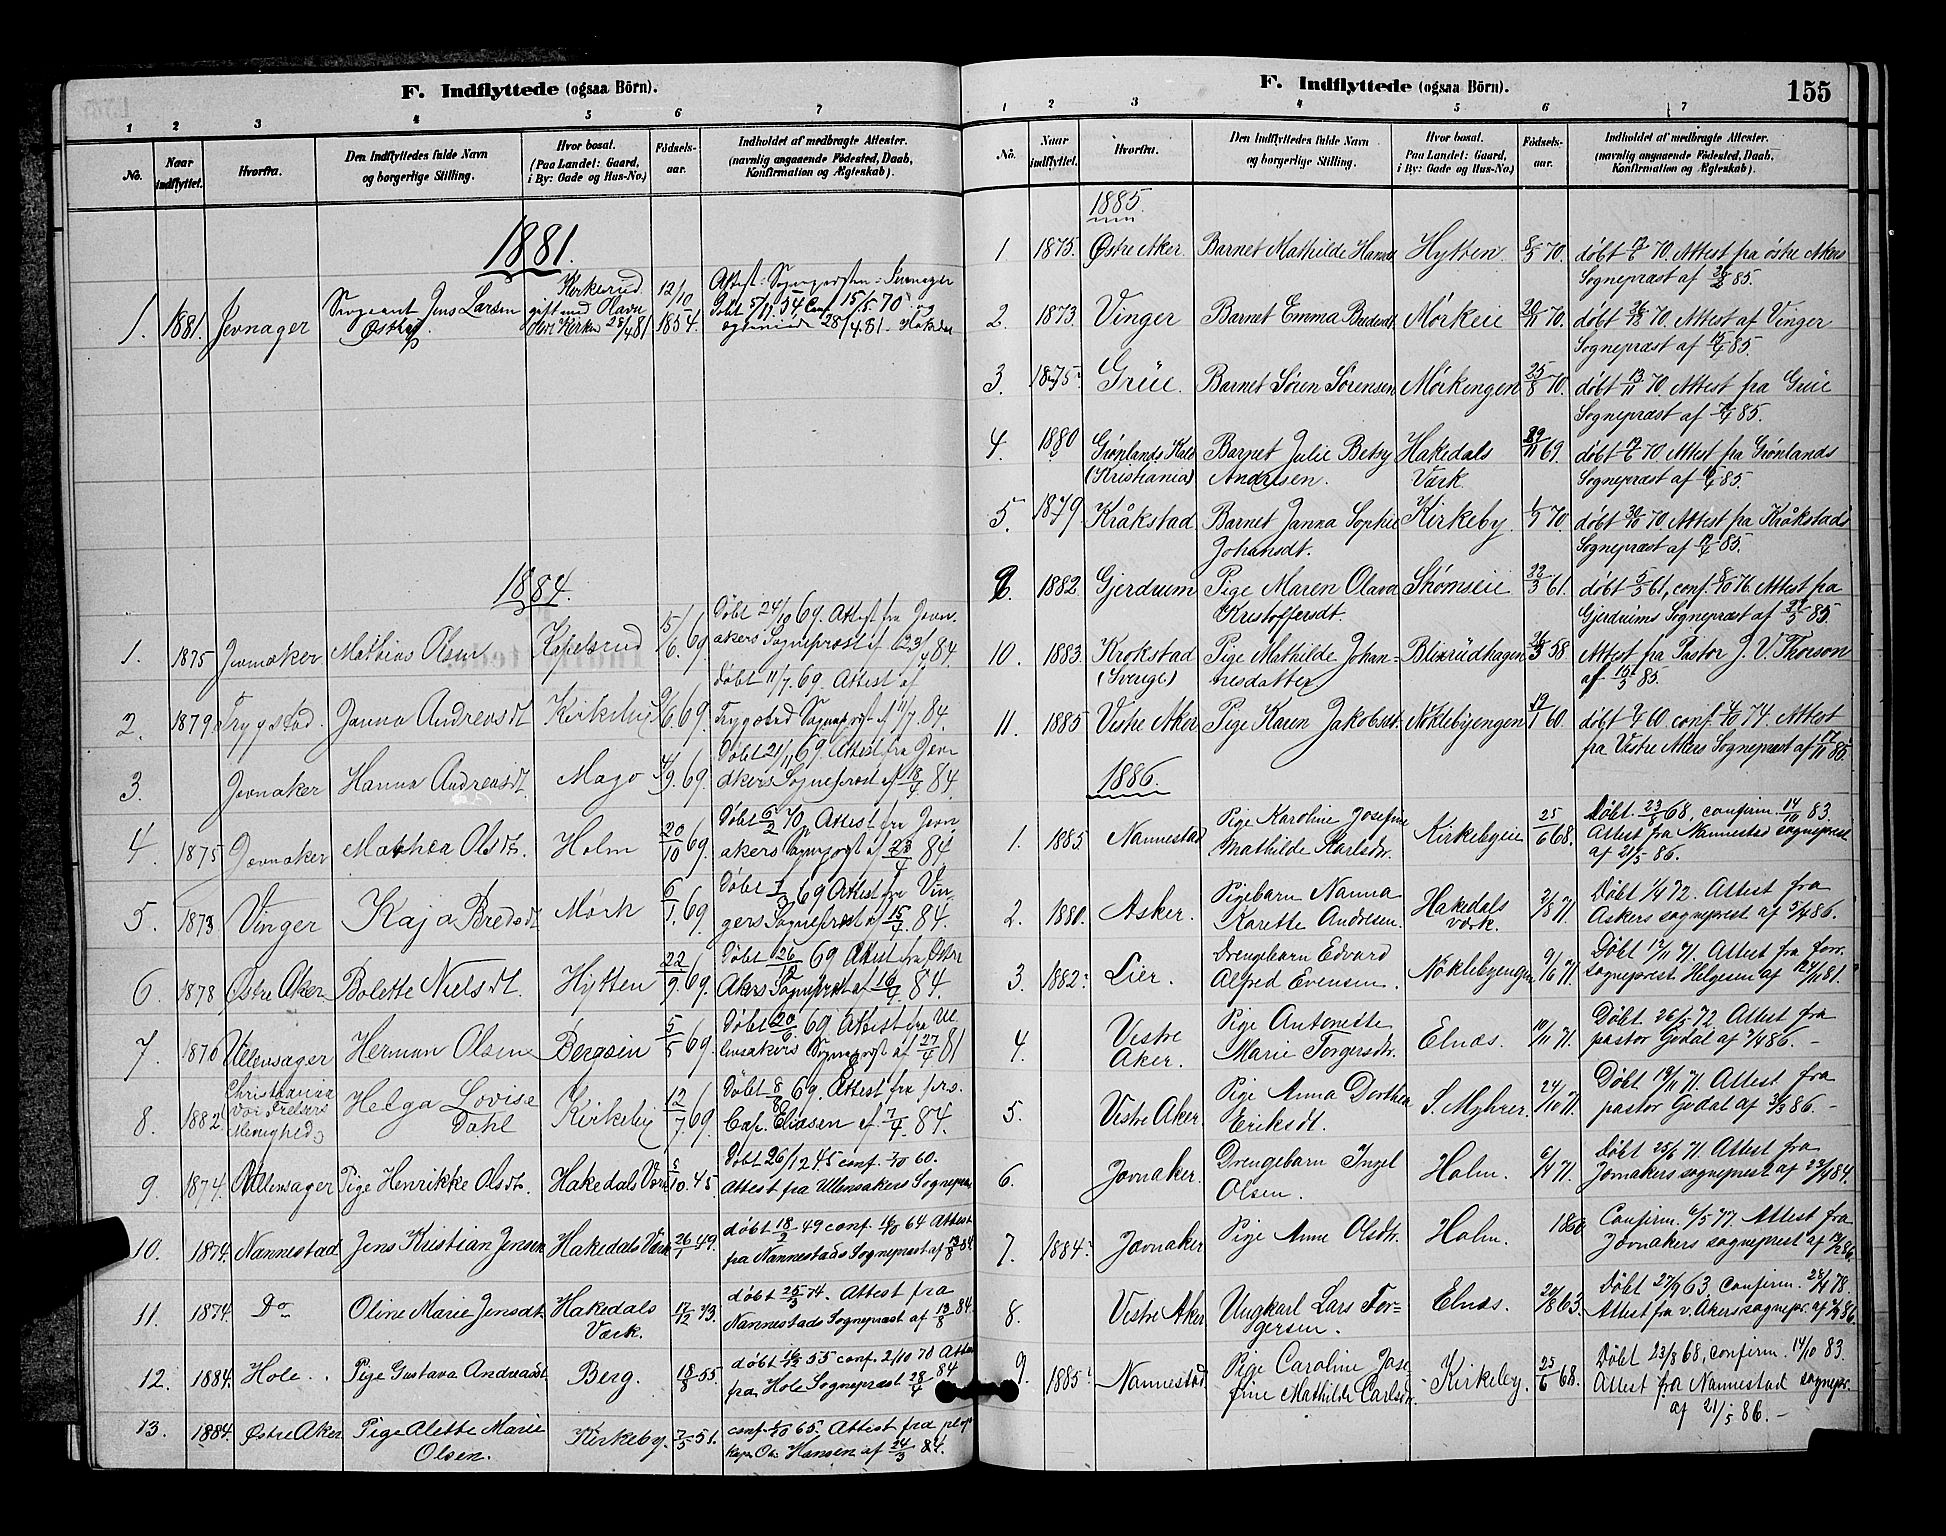 F. Indflyttede (ogsaa Börn).
1 2 3 4 5 6 7
No. Naar indflyttet. Hvorfra. Den Indflyttedes fulde Navn og borgerlige Stilling. Hvor bosat. (Paa Landet: Gaard, i By: Gade og Hus-No.) Födsels-aar. Indholdet af medbragte Attester. (navnlig angaaende Födested, Daab, Konfirmation og Ægteskab).
1881.
1. 1881. Jevnager Sergeant Jens Larsen Kirkerud gift med 12/10 1854.
1884.
Døbt 24/10 69. Attest fra Jevn-
1. 1875 Jevnaker Mathias Olsen Kapelsrud 15/6 69. akers Sogneprest af 23/4 84.
Døbt 11/7 69. Attest af
2. 1879 Trygstad. Janna Andreasdt. Kirkeby 9/6 69. Trygstad Sogneprest af 11/7 84.
Døbt 21/11 69. Attest fra Jevn
3. Jevnaker Hanna Andreasdt. Mago 69. akers Sogneprest af 18/4 84.
Døbt 6/2 70. Attest fra Jevn.
4. 1875 Jevnaker Mathea Olsdt. Holm 20/10 69. akers Sogneprest af 23/4 84.
69 Attest fra Vin-
5. 1873 Vinger Kaja Bredsdt Mørk 6/1 69. gers Sogneprest af 15/4 84.
Døbt 26/12 69 Attest fra Østre
6. 1878 Østre Aker Bolette Nielsdt. Hytten 22/9 69. Akers Sogneprest af 16/4 84.
Døbt 20/6 69. Attest fra Ul
7. 1870 Ullensager Herman Olsen Bergsein 5/5 69. lensakers Sogneprest af 27/4 81
Christiania Vor Frelsers Menighed Døbt 8/8 69. Attest fra pers.
8. 1882 Helga Lovise Dahl Kirkeby 12/7 69. Cap. Eliasen af 7/4 84.
Døbt 26/12 45 conf. 7/10 60.
9. 1874. Ullensager Pige Henrikke Olsdt. Hakedals Værk 5/10 45. Attest fra Ullensakers Sognepræst
døbt 18/2 49 conf. 64 Attest
10. 1874. Nannestad Jens Kristian Jensen Hakedals Værk 26/1 49. fra Nannestads Sognepræst af 13/8 84
døbt 25/3 74. Attest fra
11. 1874. Do Oline Marie Jensdt. Hakedals Værk. 17/12 73. Nannestads Sognepræst af 13/8 84.
døbt 16/12 55 conf. 2/10 70 Attest
12. 1884. Hole. Pige Gustava Andreasdt Berg. 18/8 55. fra Hole Sognepræst 28/4 84
conf. 65. Attest fra
13. 1884. Østre Aker Pige Alette Marie Olsen. Kirkeby. 7/5 51. Hansen af 24/3 84.
F. Indflyttede (ogsaa Börn). 155
1 2 3 4 5 6 7
No. Naar indflyttet. Hvorfra. Den Indflyttedes fulde Navn og borgerlige Stilling. Hvor bosat. Paa Landet: Gaard, i By: Gade og Hus-No.) Födsels-aar. Indholdet af medbragte Attester. (navnlig angaaende Födested, Daab, Konfirmation og Ægteskab).
1885.
1 1875. Østre Aker Barnet Mathilde Hansdt Hytten 8/5 70. døbt 70. Attest fra østre Akers
Sognepræst af 85.
2. 1873. Vinger Barnet Emma Bredesdt Mørkeie 20/11 70. døbt 26/12 70. Attest af Vinger
Sognepræst af 85.
3. 1875. Grüe. Barnet Søren Sørensen Mørkengen 25/8 70. døbt 13/11 70. Attest fra Grüe
Sognepræst af 85.
4. 1880 Grønlands Kald (Kristiania) Barnet Julie Betzy Andresen. Hakedals Værk 29/11 69. døbt 70. Attest fra Grønlands
Sognepræst af 85.
5. 1879. Kråkstad Barnet Janna Sophie Johansdt. Kirkeby. 70. døbt 30/10 70. Attest fra Kråkstads
Sognepræst af 85.
1882. Gjerdrum Pige Maren Olava Kristoffersdt. Strømseie 22/3 61. døbt 5/5 61, conf. 8/10 76. Attest fra
Gjerdrums Sognepræst af 85.
10. 1883. Krokstad (Sverige) Pige Mathilde Johan=nesdatter Blixrüdhagen 26/3 58. Attest fra Pastor J. V. Thoeson
af 15/3 85.
11. 1885 Vestre Aker Pige Karen Jakobsdt. Nøklebyengen 19/1 60. døbt 60. conf. 74. Attest
fra Vestre Akers Sognepræst af 85.
1886.
1. 1885 Nannestad Pige Karoline Josefine Mathilde Karlsdr. Kirkebyeie 25/6 68. Døbt 23/8 68, confirm. 14/10 83.
Attest fra Nannestad sogneprest
af 21/5 86.
2. 1880. Asker. Pigebarn Nanna Karette Andresen. Hakedals værk. 71. Døbt 1/4 72. Attest fra
Askers sogneprest af 5/4 86.
3. 1882. Lier. Drengebarn Edvard Alfred Evensen. Nøklebyengen 9/6 71. Døbt 12/11 71. Attest fra forr.
sogneprest Helgesen af 81.
4. Vestre Aker. Pige Antonette Marie Torgersdr. Elnæs. 10/11 71. Døbt 26/5 72 Attest fra
pastor Godal af 86. –
5. Vestre Aker. Pige Anna Dorthea Eriksdt. S. Myhrer. 24/10 71. Døbt 19/11 71. Attest fra
pastor Godal af 3/3 86. –
6. Jævnaker. Drengebarn Ingel Olsen. Holm. 6/4 71. Døbt 25/6 71. Attest fra
Jævnakers sogneprest af 23/4 84.
7. 1884. Jævnaker Pige Anne Olsdr. Holm. 1860 Confirm. 6/5 77. Attest fra
Jævnakers sogneprest af 86.
8. Vestre Aker Ungkarl Lars Tor=gersen. Elnæs. 63. Døbt 27/9 63. Confirm. 78.
Attest fra v. Akers sognepr. af 86.
9. 1885. Nannestad Pige Caroline Josefine Mathilde Carlsdr. Kirkeby. 25/6 68. Døbt 23/8 68, confirm. 14/10 83.
Attest fra Nannestad sognepr.
af 21/5 86. –